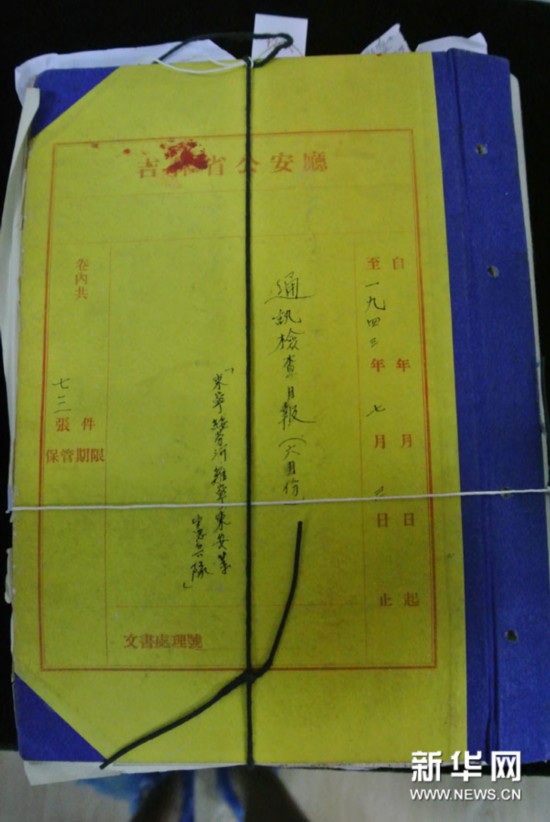 吉林省公安廳
自 年 月 日 起
至一九四三年七月 日 止
通訊檢查月報
東寧綏芬河雞寧東安等
憲兵隊
卷內共
七二張件
保管期限
文書處理號
新华网
WWW.NEWS.CN